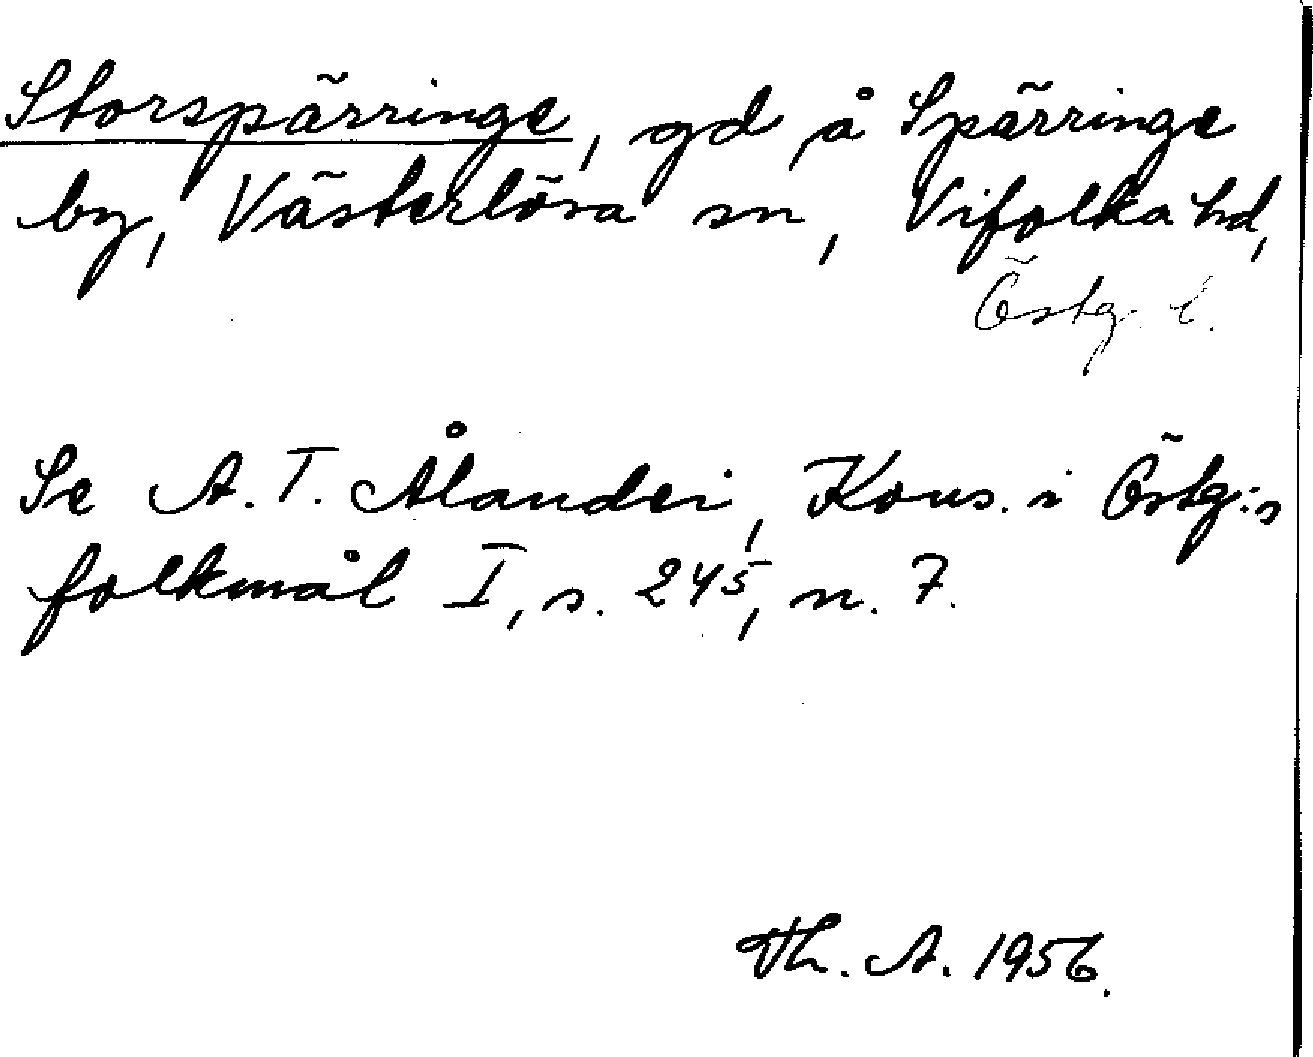 Storspärringe, gd å Spärringe
by, Västerlösa sn, Vifolka hd,
Östg. l.
Se A. T. Ålander, Kons. i Östg:s
folkmål I, s. 245, n. 7.
Th. A. 1956.